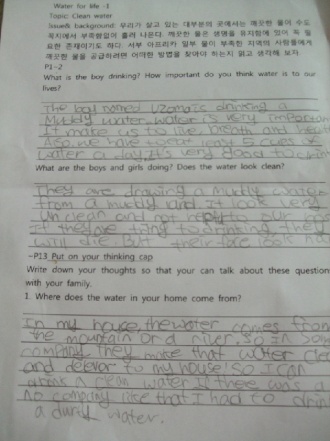 Water for life -1
Topic: Clean water
Issue& background: 우리가 살고 있는 대부분의 곳에서는 깨끗한 물이 수도
꼭지에서 부족함없이 흘러 나온다. 깨끗한 물은 생명을 유지함에 있어 꼭 필
요한 존재이기도 하다. 서부 아프리카 일부 물이 부족한 지역의 사람들에게
깨끗한 물을 공급하려면 어떠한 방법을 찾아야 하는지 읽고 생각해 보자.
P1-2
What is the boy drinking? How important do you think water is to our
lives?
The boy named Uzoma is drinking a
Muddy water. Water is very important
It make us to live, breath and
Also, we have to eat 5 cups of
water a day. It's very good to
What are the boys and girls doing? Does the water look clean?
They are drawing a muddy water
from a muddy land. It look very
Un clean and not help to our
If they are to drinking, they
will die. But their face look
-P13 Put on your thinking cap
Write down your thoughts so that your can talk about these question
with your family.
1. Where does the water in your home come from?
In my house, the water comes from
the mountain or a river. So in som
company they make that water clea
and delever to my house! So I can
drink a clean water. If there was a
no company like that I had to drin
a durty water.